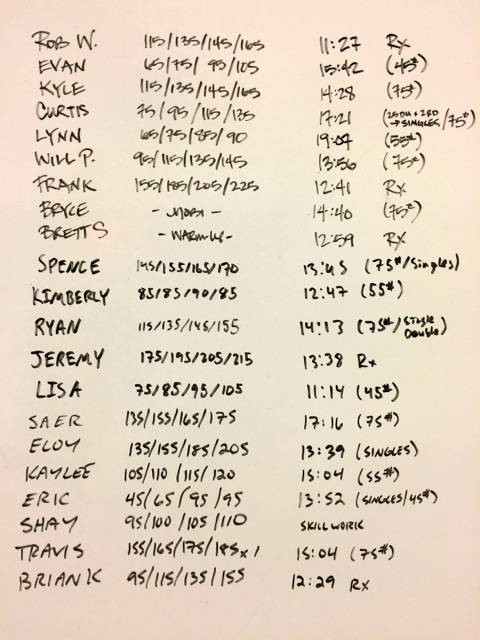 ROB W. 115/135/145/165 11:27 Rx
EVAN 65/75/ 95/105 15:42 (45#)
KYLE 115/135/145/165 14:28 (75#)
CURTIS 75/95/115/135 17:21 (25DU + 2RD → SINGLES /75#)
LYNN 65/75/85/90 19:04 (55#)
WILL P. 95/115/135/145 13:56 (75#)
FRANK 155/185/205/225 12:41 Rx
BRYCE - MOBI - 14:40 (75#)
BRETT S - WARMUP - 12:59 Rx
SPENCE 145/155/165/170 13:45 (75#/Singles)
KIMBERLY 85/85/90/85 12:47 (55#)
RYAN 115/135/145/155 14:13 (75#/Single Double)
JEREMY 175/195/205/215 13:38 Rx
LISA 75/85/95/105 11:14 (45#)
SAER 135/155/165/175 17:16 (75#)
ELOY 135/155/185/205 13:39 (SINGLES)
KAYLEE 105/110 /115/ 120 15:04 (55#)
ERIC 45/65/95/95 13:52 (SINGLES/45#)
SHAY 95/100 /105 /110 SKILL WORK
TRAVIS 155/165/175/185x/ 15:04 (75#)
BRIAN K 95/115/135/155 12:29 Rx